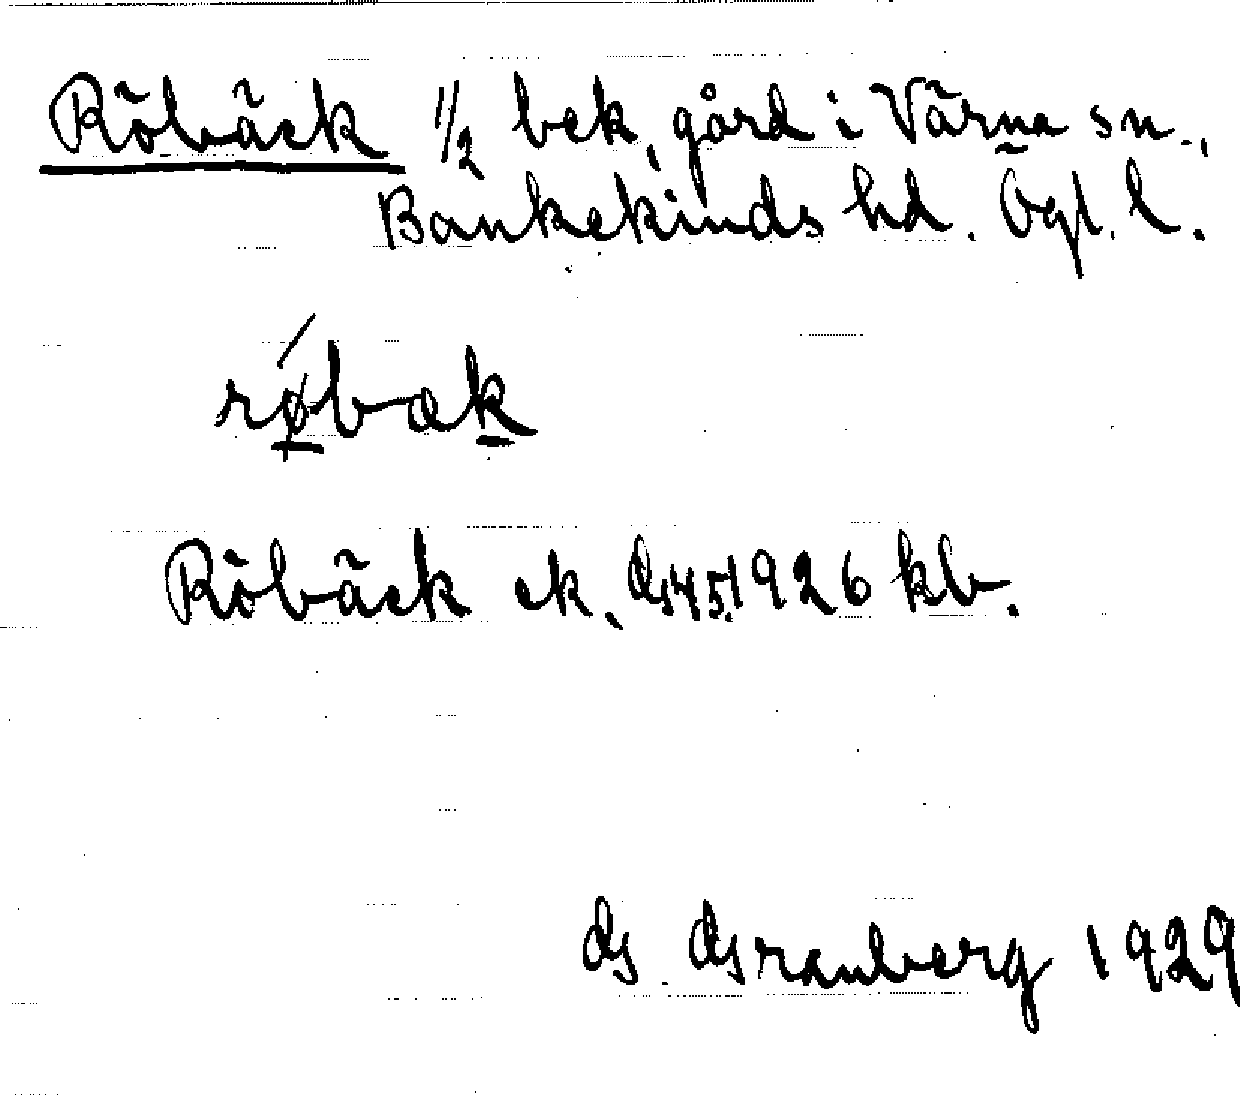 Röbäck 1/2 bek. gård i Värna sn.,
Bankekinds hd. Ögl. l.
røbæk
Röbäck ek. G45 1926 kb.
G. Granberg 1929